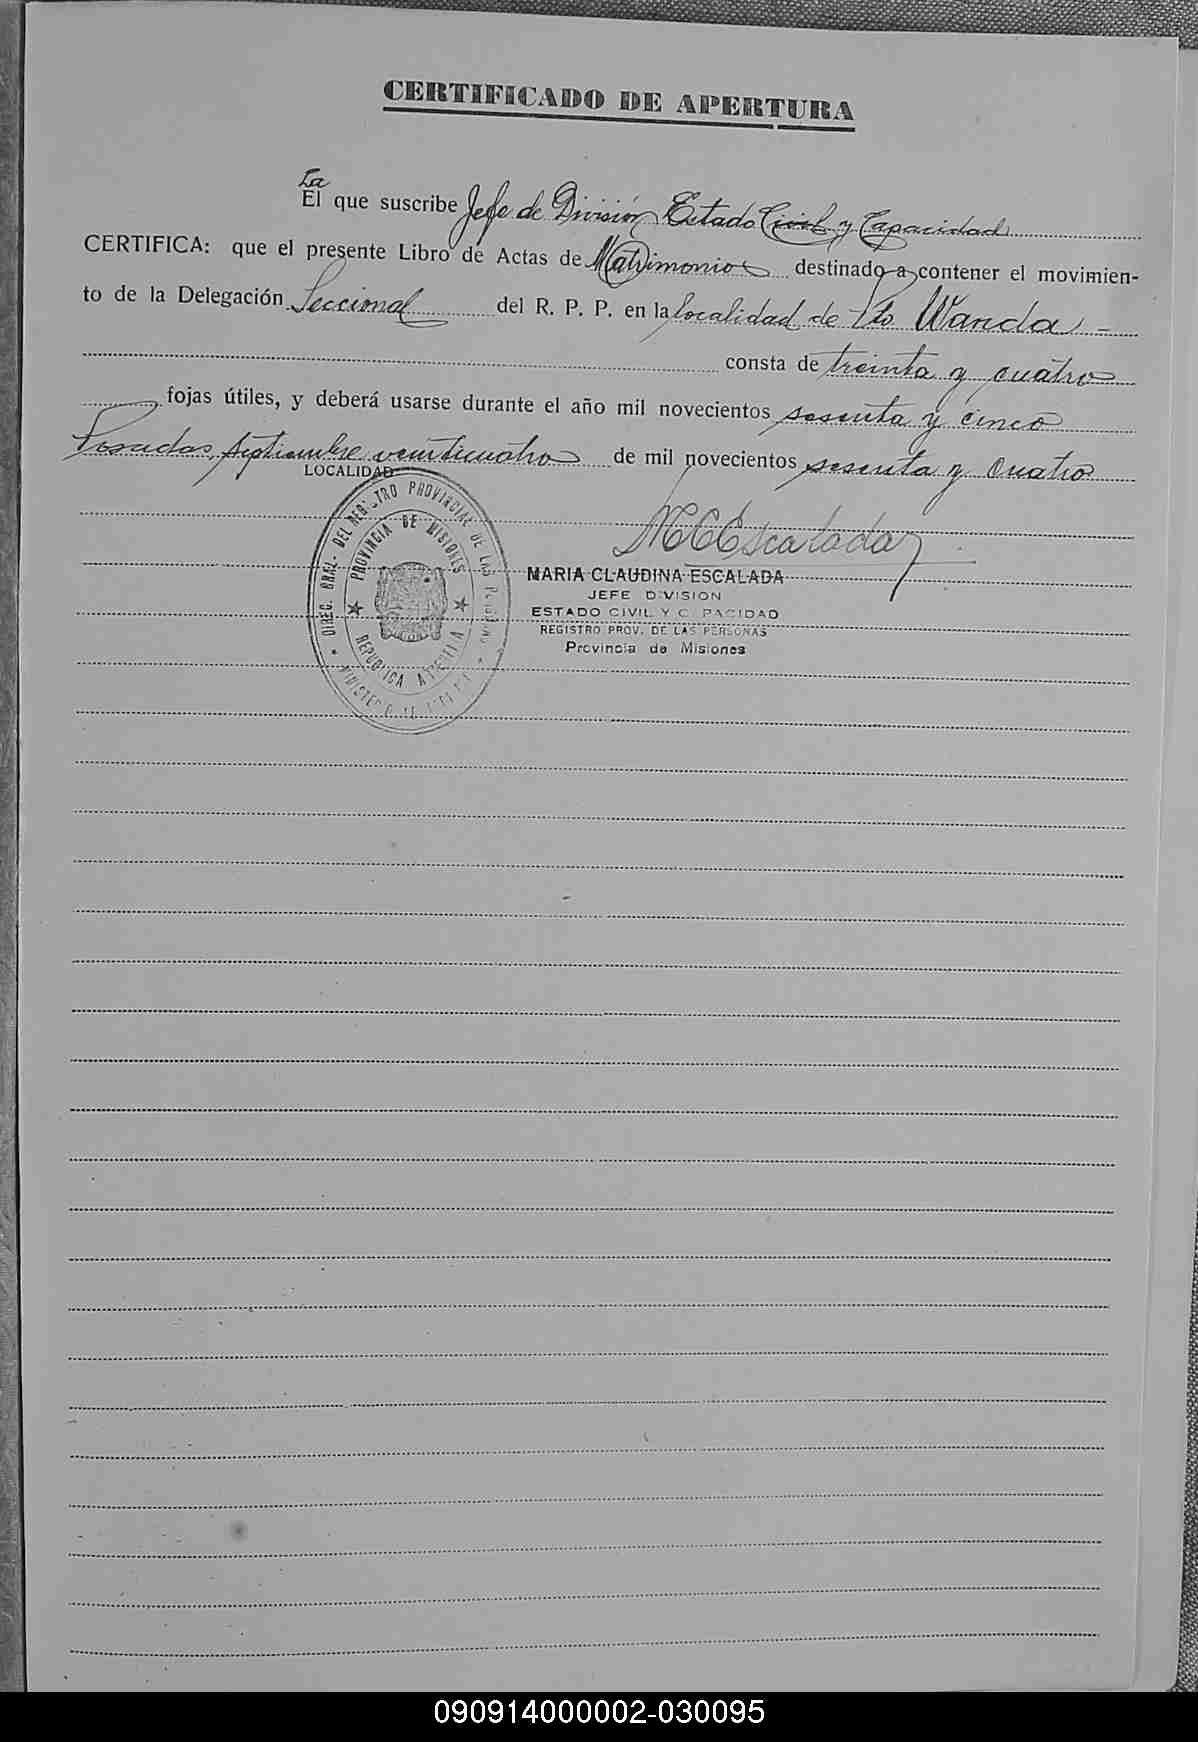 CERTIFICADO DE APERTURA
La
El que suscribe Jefe de División Estado Civil y Capacidad
CERTIFICA: que el presente Libro de Actas de Matrimonios destinado a contener el movimien-
to de la Delegación Seccional del R. P. P. en la localidad de Pto Wanda -
consta de treinta y cuatro
fojas útiles, y deberá usarse durante el año mil novecientos sesenta y cinco
Posadas, septiembre veinticuatro de mil novecientos sesenta y cuatro
LOCALIDAD
DIREC. GRAL. DEL REGISTRO PROVINCIAL DE LAS PERSONAS
PROVINCIA DE MISIONES
REPUBLICA ARGENTINA
MCEscalada
MARIA CLAUDINA ESCALADA
JEFE DIVISION
ESTADO CIVIL Y CAPACIDAD
REGISTRO PROV. DE LAS PERSONAS
Provincia de Misiones
090914000002-030095